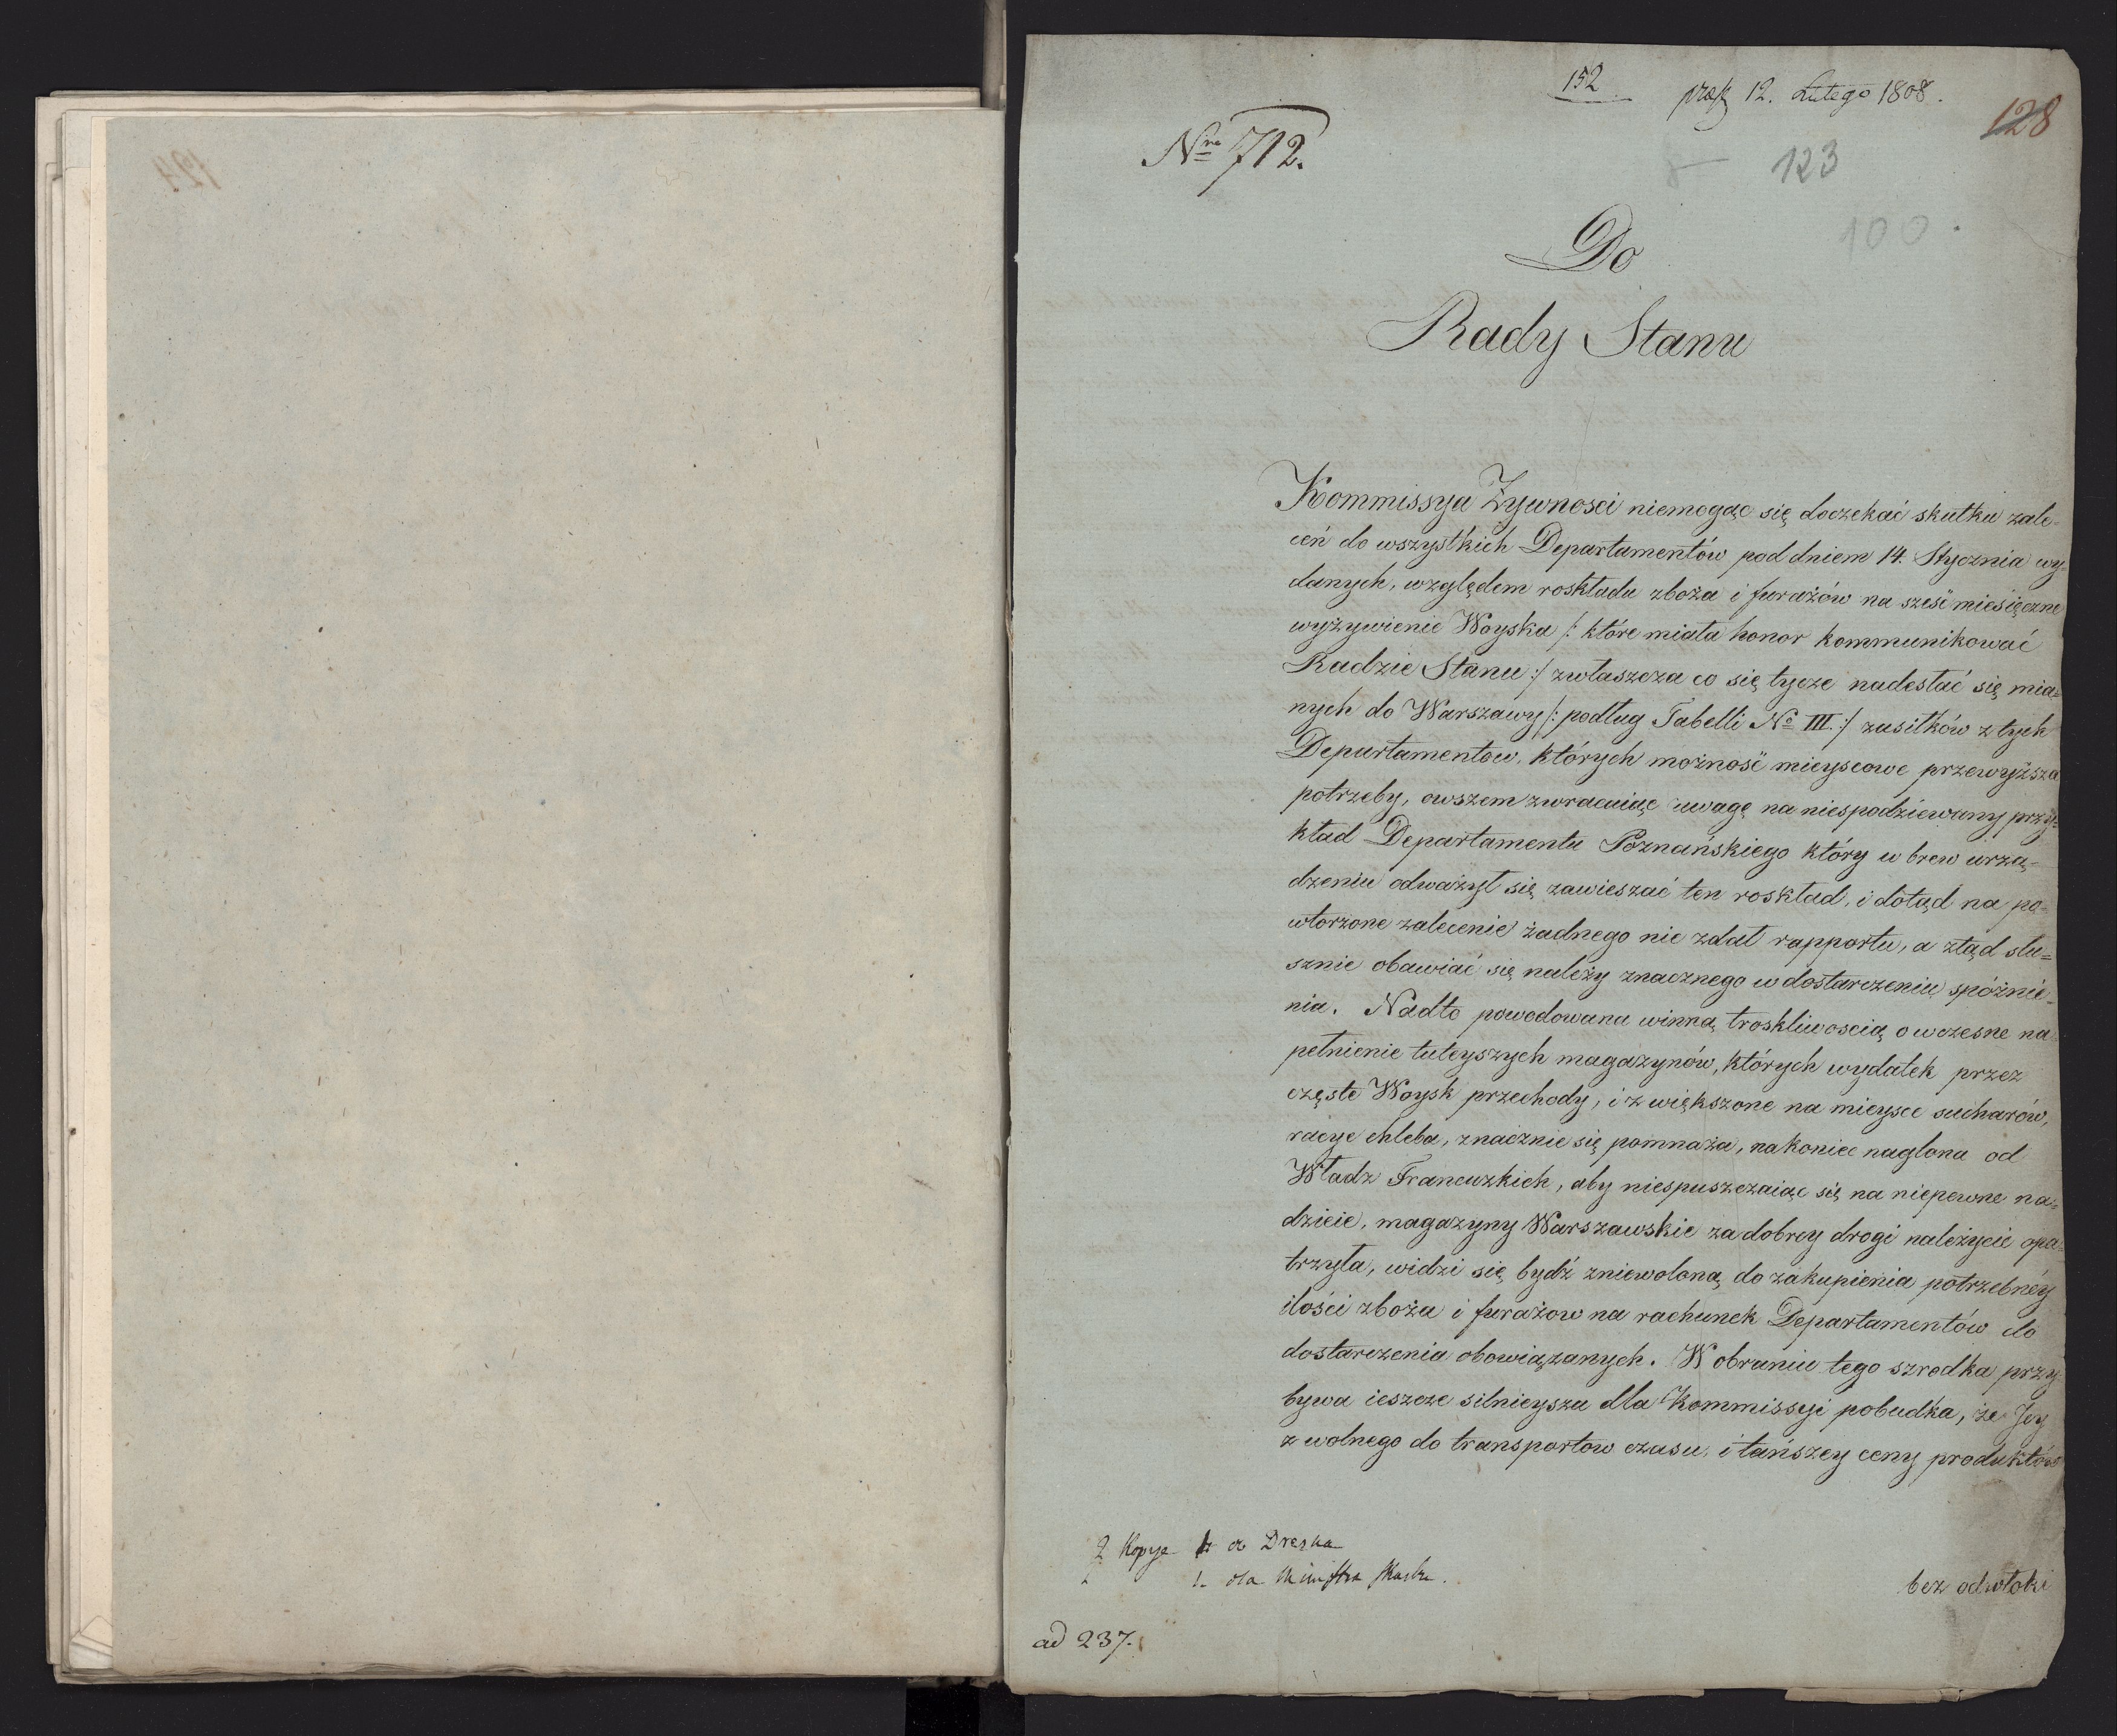 152
prез 12. Lutego 1808.
128
Nro 712.
123
100.
Do
Rady Stanu
Kommissya Żywnosci niemogąc się doczekać skutku zale-
ceń do wszystkich Departamentów pod dniem 14. Stycznia wy-
danych, względem roskładu zboża i furażów na sześć miesięczne
wyżywienie Woyska /: które miała honor kommunikować
Radzie Stanu :/ zwłaszcza co się tycze nadesłać się mia-
nych do Warszawy /: podług Tabelli No III. :/ zasiłków z tych
Departamentow, których możność mieyscowe przewyższa
potrzeby, owszem zwracaiąc uwagę na niespodziewany przy-
kład Departamentu Poznańskiego który w brew urzą-
dzeniu odważył się zawieszać ten roskład, i dotąd na po-
wtorzone zalecenie żadnego nie zdał rapportu, a ztąd słu=
sznie obawiać się należy znacznego w dostarczeniu spóźnie-
nia. Nadto powodowana winną troskliwoscią o wczesne na
pełnienie tuteyszych magazynów, których wydatek przez
częste Woysk przechody, i zwiększone na mieysce sucharów,
racye chleba, znacznie się pomnaża, nakoniec naglona od
Władz Francuzkich, aby niespuszczaiąc się na niepewne na=
dzieie, magazyny Warszawskie za dobrey drogi należycie opa=
trzyła, widzi się bydź zniewoloną do zakupienia potrzebnéy
ilości zboża i furażow na rachunek Departamentów do
dostarczenia obowiązanych. W obraniu tego szrodka przy
bywa ieszcze silnieysza dla Kommissyi pobudka, że Jey
z wolnego do transportow czasu, i tańszey ceny produktów
bez odwłoki
2 Kopye 1. do Drezna
1. dla Ministra Skarbu.
ad 237.
124